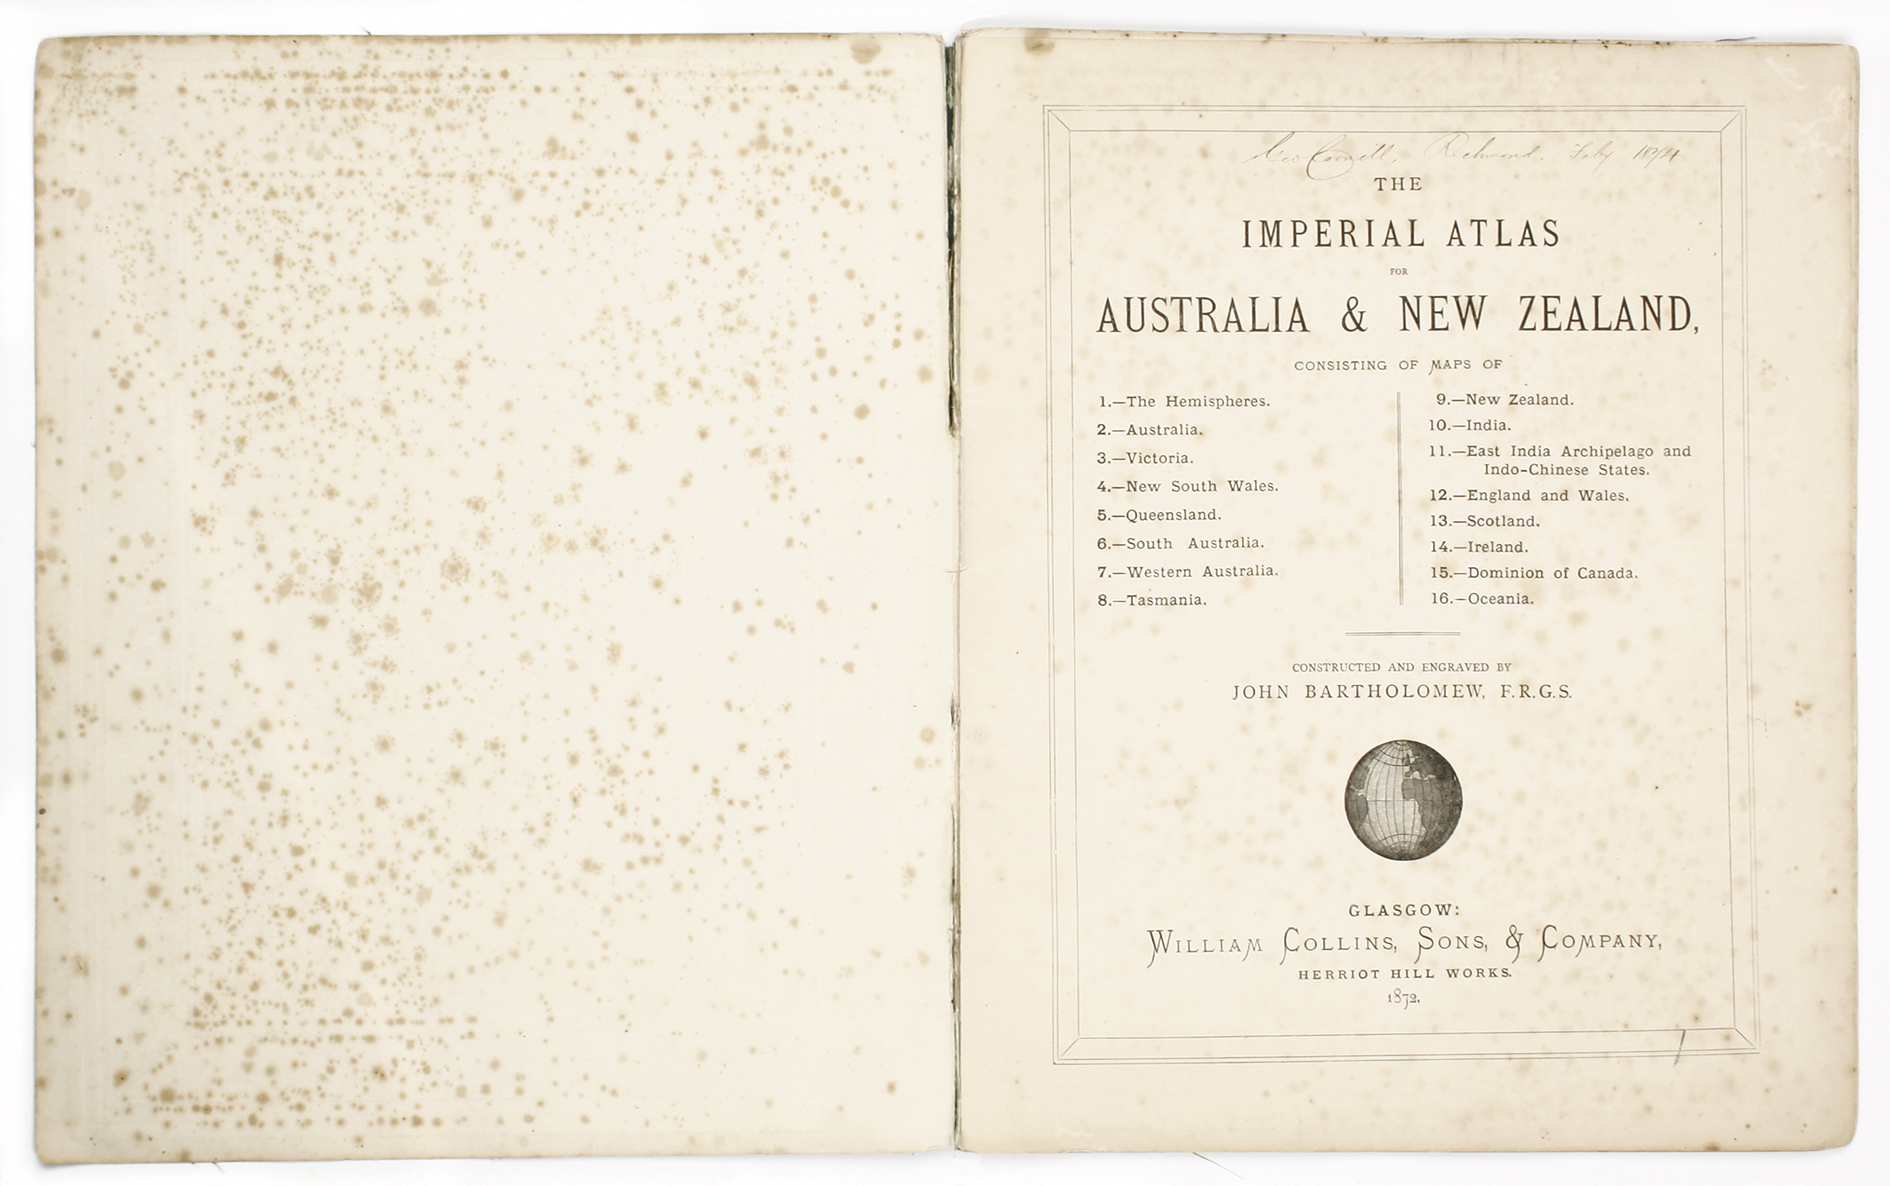 Richmond, Feby 1874
THE
IMPERIAL ATLAS
FOR
AUSTRALIA & NEW ZEALAND,
CONSISTING OF MAPS OF
1.—The Hemispheres.
2.—Australia.
3.—Victoria.
4.—New South Wales.
5.—Queensland.
6.—South Australia.
7.—Western Australia.
8.—Tasmania.
9.—New Zealand.
10.—India.
11.—East India Archipelago and
Indo-Chinese States.
12.—England and Wales.
13.—Scotland.
14.—Ireland.
15.—Dominion of Canada.
16.—Oceania.
CONSTRUCTED AND ENGRAVED BY
JOHN BARTHOLOMEW, F.R.G.S.
GLASGOW:
WILLIAM COLLINS, SONS, & COMPANY,
HERRIOT HILL WORKS.
1872.